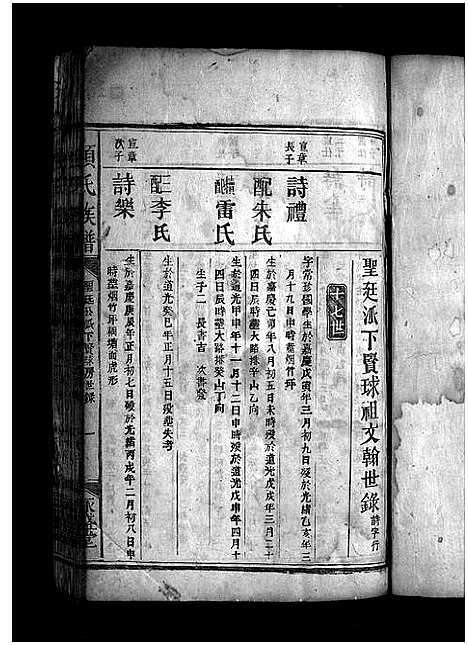 聖廷派下賢球祖文翰世錄 詩字行
十七世
宣章長子 詩禮 字常珍國學生於嘉慶戊寅年三月初九日沒於光緒乙亥年三
月十九日申時塟烟竹坪
配朱氏 生於嘉慶己卯年八月初五日未時歿於道光戊戌年三月二十
四日辰時塟大路排辛山乙向
續配雷氏 生於道光甲申年十一月十二日申時歿於道光戊申年四月十
四日辰時塟大路排癸山丁向
生子二 長書吉 次書
二配李氏 生於道光癸巳年正月十五日歿塟失考
宣章次子 詩樂 生於嘉慶庚辰年正月初七日歿於光緒丙戌年二月初八日申
時塟烟竹坪 虎形
氏族譜
聖廷公派下賢球房世錄
一